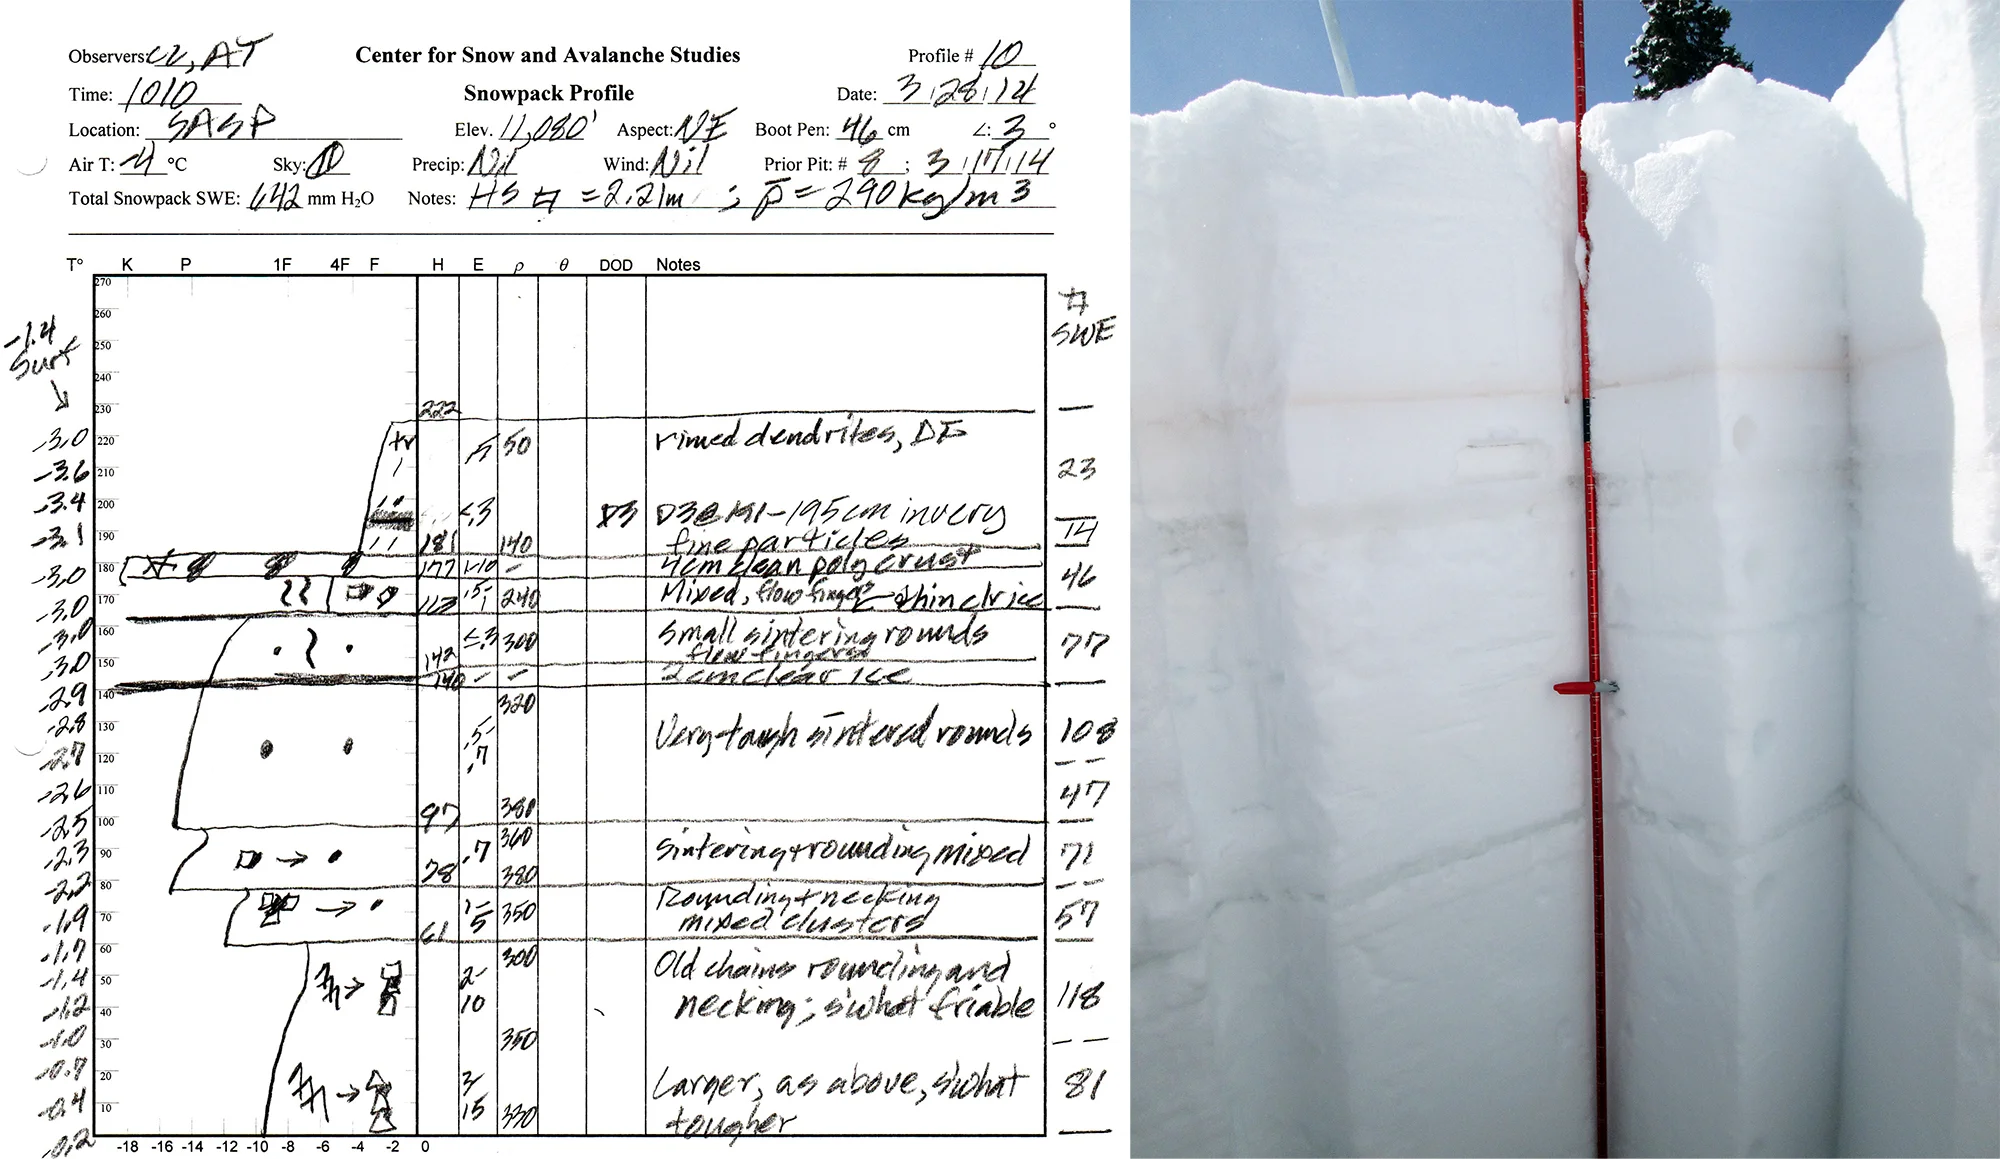 Observers: CL, AT Center for Snow and Avalanche Studies Profile # 10
Time: 1010 Snowpack Profile Date: 3/28/14
Location: SASP Elev. 11,080' Aspect: NE Boot Pen: 46 cm ∠: 3 °
Air T: -4 °C Sky: Precip: Nil Wind: Nil Prior Pit: # 8 ; 3/17/14
Total Snowpack SWE: 642 mm H2O Notes: HS # = 2.21m ; ρ̄ = 290 kg/m3
T° K P 1F 4F F H E ρ θ DOD Notes
#
SWE
-1.4
Surf
270
260
250
240
230 222
-3.0 220 .5 50 rimed dendrites, DF
-3.6 210 23
-3.4 200 <.3 D3 D3 @ 191-195cm in very
-3.1 190 181 140 fine particles 14
-3.0 180 177 1-10 - 4cm clean poly crust
-3.0 170 .5-1 240 Mixed, flow fingers thin clr ice 46
-3.0 160 <.3 300 small sintering rounds 77
-3.0 150 142 flow fingers
-2.9 140 140 - - 2cm clear ice
320
-2.8 130 .5-
-2.7 120 .7 Very tough sintered rounds 108
-2.6 110 47
-2.5 100 97 380
360
-2.3 90 .7 sintering + rounding mixed 71
-2.2 80 78 380
Rounding + necking
-1.9 70 1-5 350 mixed clusters 57
-1.7 60 61
300
-1.4 50 2- Old chains rounding and
-1.2 40 10 necking; s'what friable 118
-1.0 30 350
-0.7 20 3- Larger, as above, s'what 81
-0.4 10 15 330 tougher
-0.2
-18 -16 -14 -12 -10 -8 -6 -4 -2 0